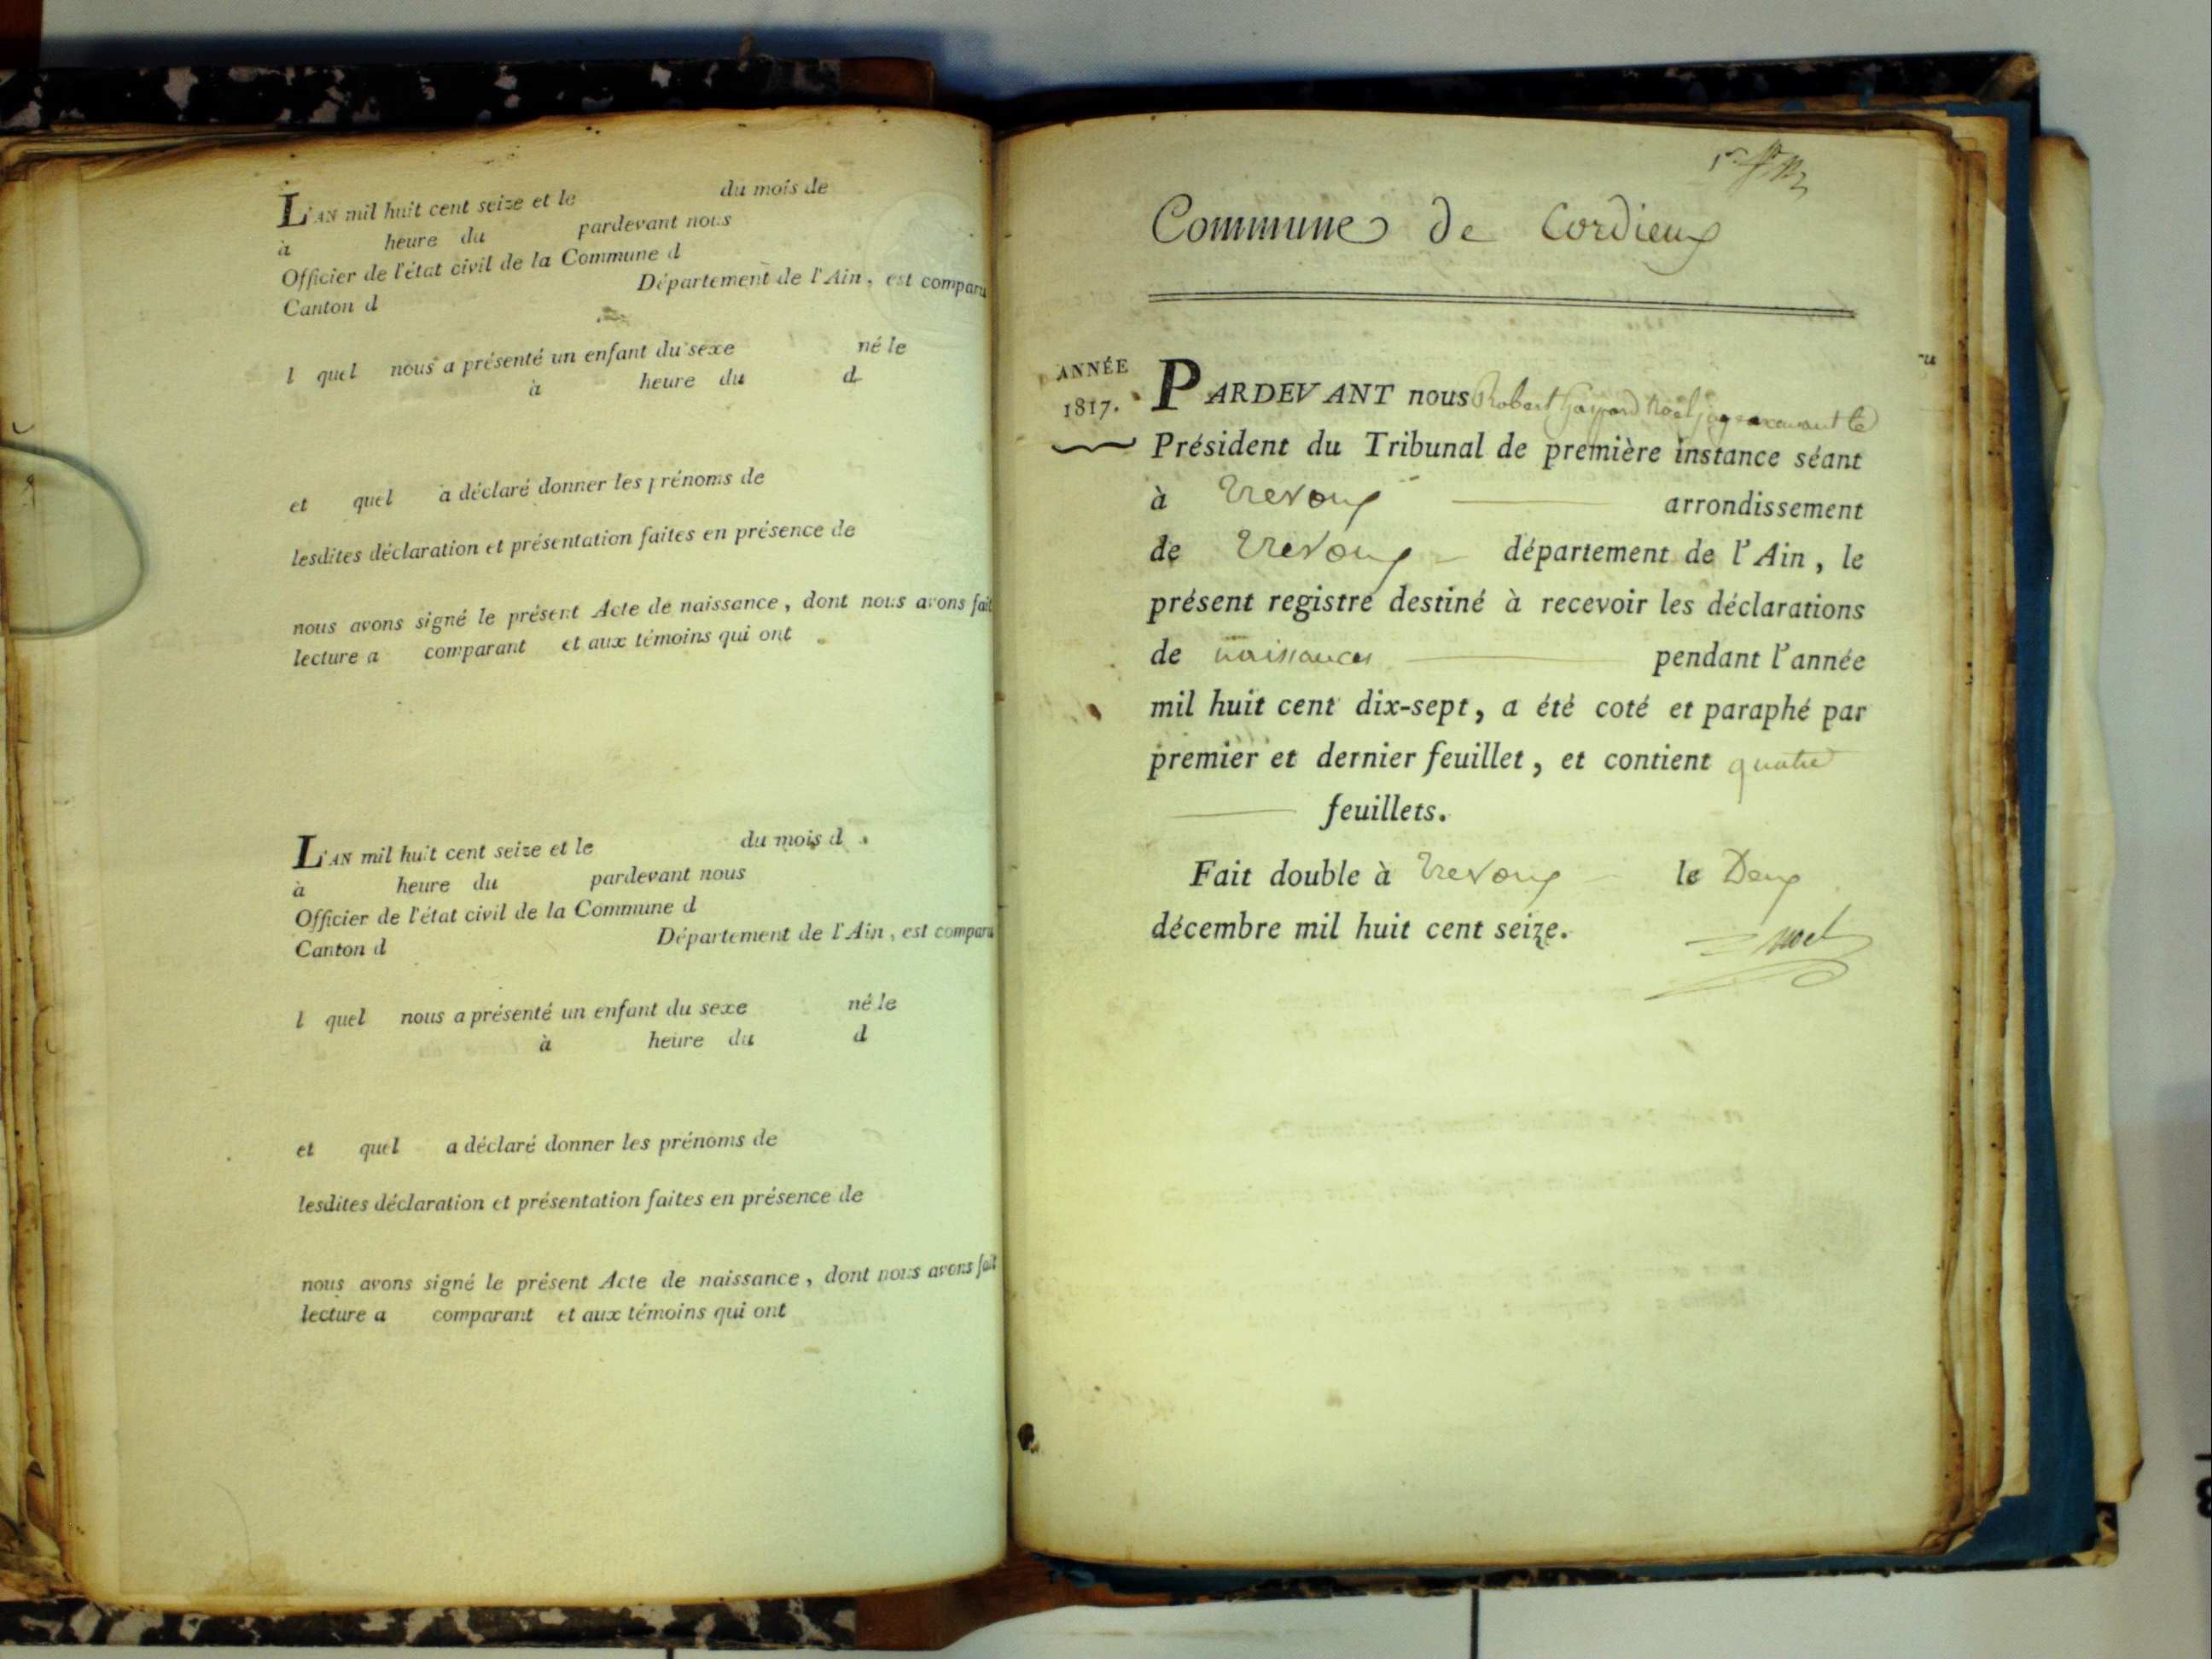 L'AN mil huit cent seize et le du mois de
à heure du pardevant nous
Officier de l'état civil de la Commune d
Canton d Département de l'Ain, est comparu
l quel nous a présenté un enfant du sexe né le
à heure du d
et quel a déclaré donner les prénoms de
lesdites déclaration et présentation faites en présence de
nous avons signé le présent Acte de naissance, dont nous avons fait
lecture a comparant et aux témoins qui ont
L'AN mil huit cent seize et le du mois d
à heure du pardevant nous
Officier de l'état civil de la Commune d
Canton d Département de l'Ain, est comparu
l quel nous a présenté un enfant du sexe né le
à heure du d
et quel a déclaré donner les prénoms de
lesdites déclaration et présentation faites en présence de
nous avons signé le présent Acte de naissance, dont nous avons fait
lecture a comparant et aux témoins qui ont
Commune de Cordieux
ANNÉE
1817.
PARDEVANT nous Robert Gaspard Noël juge le
Président du Tribunal de première instance séant
à Trevoux arrondissement
de Trevoux département de l'Ain, le
présent registre destiné à recevoir les déclarations
de naissances pendant l'année
mil huit cent dix-sept, a été coté et paraphé par
premier et dernier feuillet, et contient quatre
feuillets.
Fait double à Trevoux le Deux
décembre mil huit cent seize.
Noel